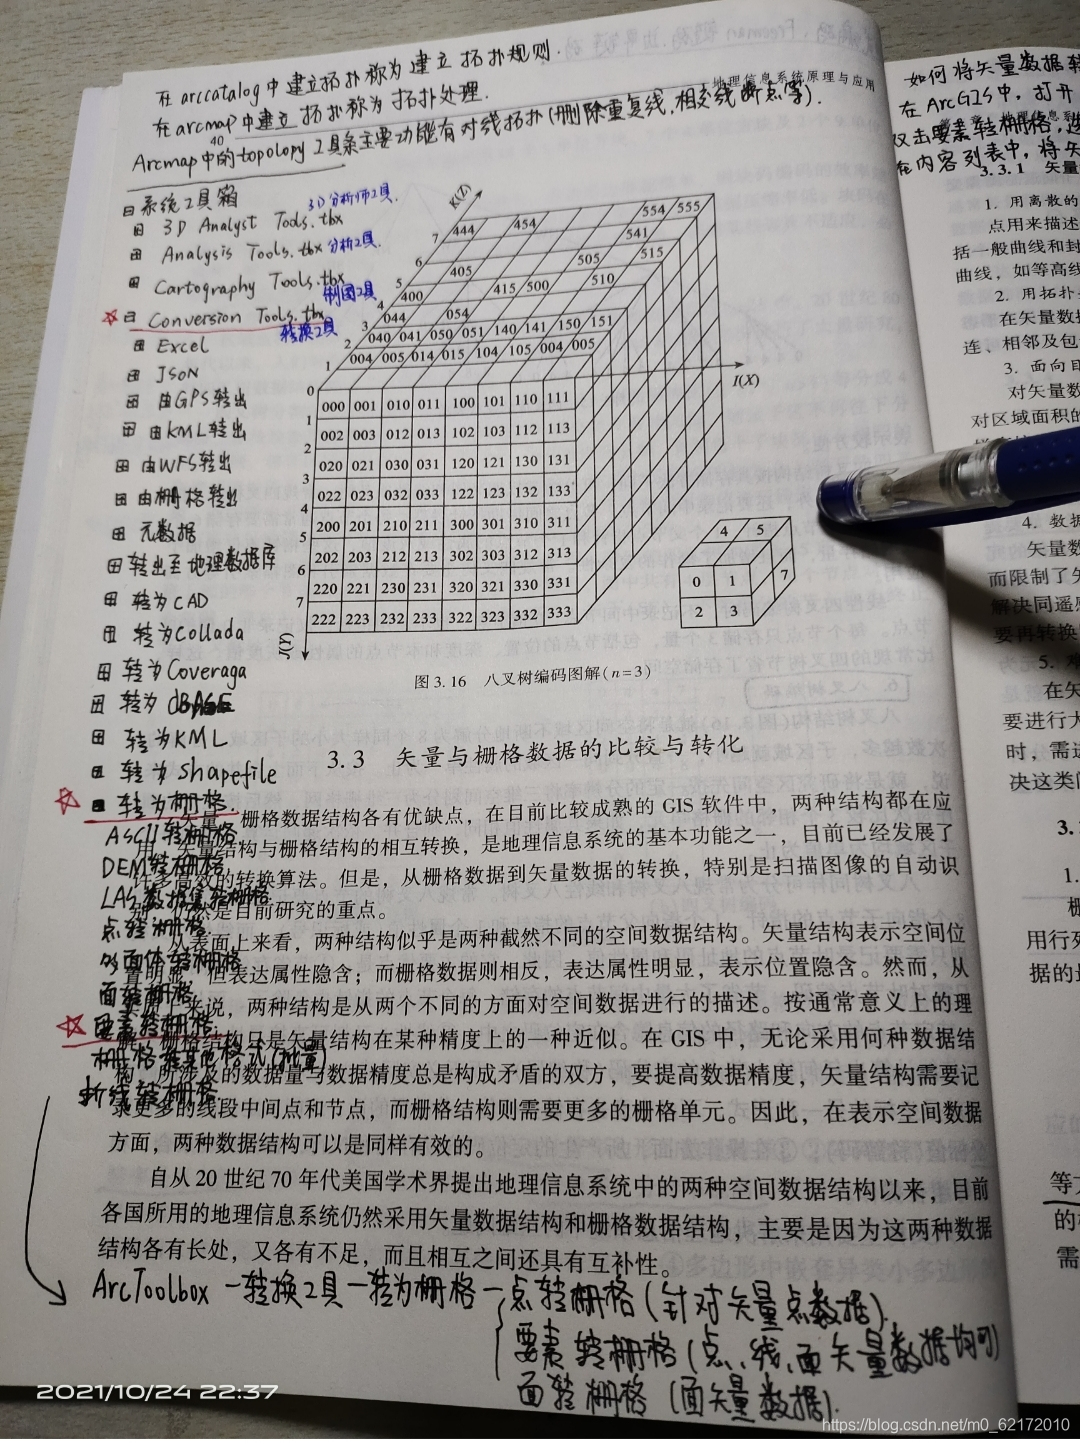 在arccatalog中建立拓扑称为建立拓扑规则.
地理信息系统原理与应用
在arcmap中建立拓扑称为拓扑处理.
40
Arcmap中的topology工具条主要功能有对线拓扑(删除重复线,相交线断点等).
系统工具箱
3D Analyst Tools.tbx 3D分析师工具.
Analysis Tools.tbx 分析工具.
Cartography Tools.tbx
制图工具
Conversion Tools.tbx
转换工具
Excel
JSON
由GPS转出
由KML转出
由WFS转出
由栅格转出
元数据
转出至地理数据库
转为CAD
转为Collada
转为Coveraga
转为dBASE
转为KML
转为Shapefile
转为栅格.
ASCII转栅格
DEM转栅格
LAS数据集转栅格
点转栅格.
多面体转栅格
面转栅格
要素转栅格.
栅格转其他格式(批量)
折线转栅格
K(Z)
7 444 454 554 555
541
6 405 505 515
5 400 415 500 510
4 044 054
3 040 041 050 051 140 141 150 151
2 004 005 014 015 104 105 004 005
1
0
I(X)
000 001 010 011 100 101 110 111
1
002 003 012 013 102 103 112 113
2
020 021 030 031 120 121 130 131
3
022 023 032 033 122 123 132 133
4
200 201 210 211 300 301 310 311
5
202 203 212 213 302 303 312 313
6
220 221 230 231 320 321 330 331
7
222 223 232 233 322 323 332 333
J(Y)
4 5
0 1 7
2 3
图 3.16 八叉树编码图解(n=3)
3.3 矢量与栅格数据的比较与转化
栅格数据结构各有优缺点，在目前比较成熟的 GIS 软件中，两种结构都在应
用，矢量结构与栅格结构的相互转换，是地理信息系统的基本功能之一，目前已经发展了
许多高效的转换算法。但是，从栅格数据到矢量数据的转换，特别是扫描图像的自动识
别，仍然是目前研究的重点。
从表面上来看，两种结构似乎是两种截然不同的空间数据结构。矢量结构表示空间位
置明显，但表达属性隐含；而栅格数据则相反，表达属性明显，表示位置隐含。然而，从
来说，两种结构是从两个不同的方面对空间数据进行的描述。按通常意义上的理
解，栅格结构只是矢量结构在某种精度上的一种近似。在 GIS 中，无论采用何种数据结
构，所涉及的数据量与数据精度总是构成矛盾的双方，要提高数据精度，矢量结构需要记
录更多的线段中间点和节点，而栅格结构则需要更多的栅格单元。因此，在表示空间数据
方面，两种数据结构可以是同样有效的。
自从 20 世纪 70 年代美国学术界提出地理信息系统中的两种空间数据结构以来，目前
各国所用的地理信息系统仍然采用矢量数据结构和栅格数据结构，主要是因为这两种数据
结构各有长处，又各有不足，而且相互之间还具有互补性。
ArcToolbox—转换工具—转为栅格—点转栅格(针对矢量点数据).
要素转栅格(点、线、面矢量数据均可)
面转栅格(面矢量数据).
如何将矢量数据转
在ArcGIS中,打开
双击要素转栅格,
在内容列表中,将矢
3.3.1 矢量
1. 用离散的
点用来描述
括一般曲线和封
曲线，如等高线
2. 用拓扑
在矢量数据
连、相邻及包
3. 面向目
对矢量数
对区域面积的
4. 数据
矢量数
而限制了矢
解决同遥感
要再转换
5.
在矢
要进行大
时，需
决这类问
3.
1.
栅
用行列
据的
等方
的
需
2021/10/24 22:37
https://blog.csdn.net/m0_62172010